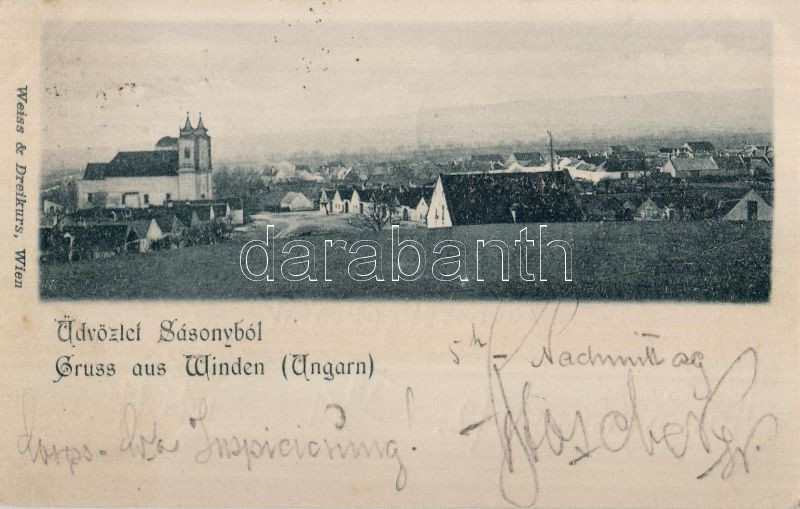 Weiss & Dreikurs, Wien
darabanth
Üdvözlet Sásonyból
Gruss aus Winden (Ungarn)
5h - Nachmittag
Inspicirung!